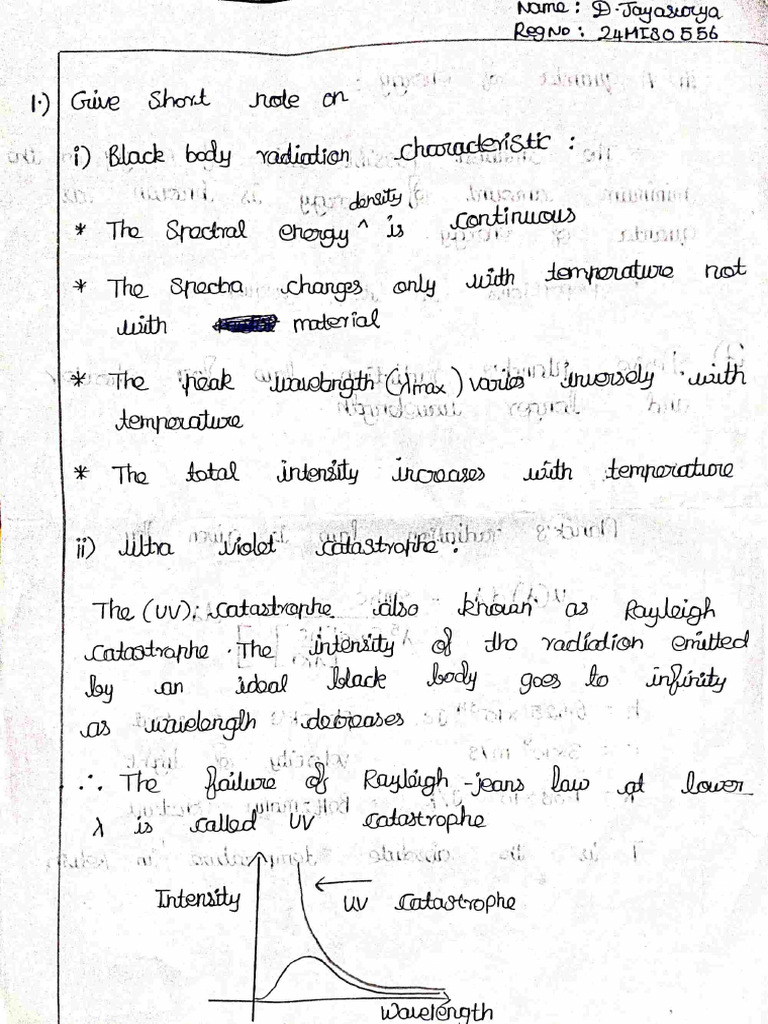 Name: D. Jayasurya
Reg No: 24MIS0556
1.) Give Short note on
i) Black body radiation characteristic:
* The Spectral energy ^ density is continuous
* The Spectra changes only with temperature not
with material
* The peak wavelength (λmax) varies inversely with
temperature
* The total intensity increases with temperature
ii) Ultra violet catastrophe:
The (UV): catastrophe also known as Rayleigh
catastrophe. The intensity of the radiation emitted
by an ideal black body goes to infinity
as wavelength decreases
∴ The failure of Rayleigh-jeans law at lower
λ is called UV catastrophe
Intensity
UV catastrophe
Wavelength